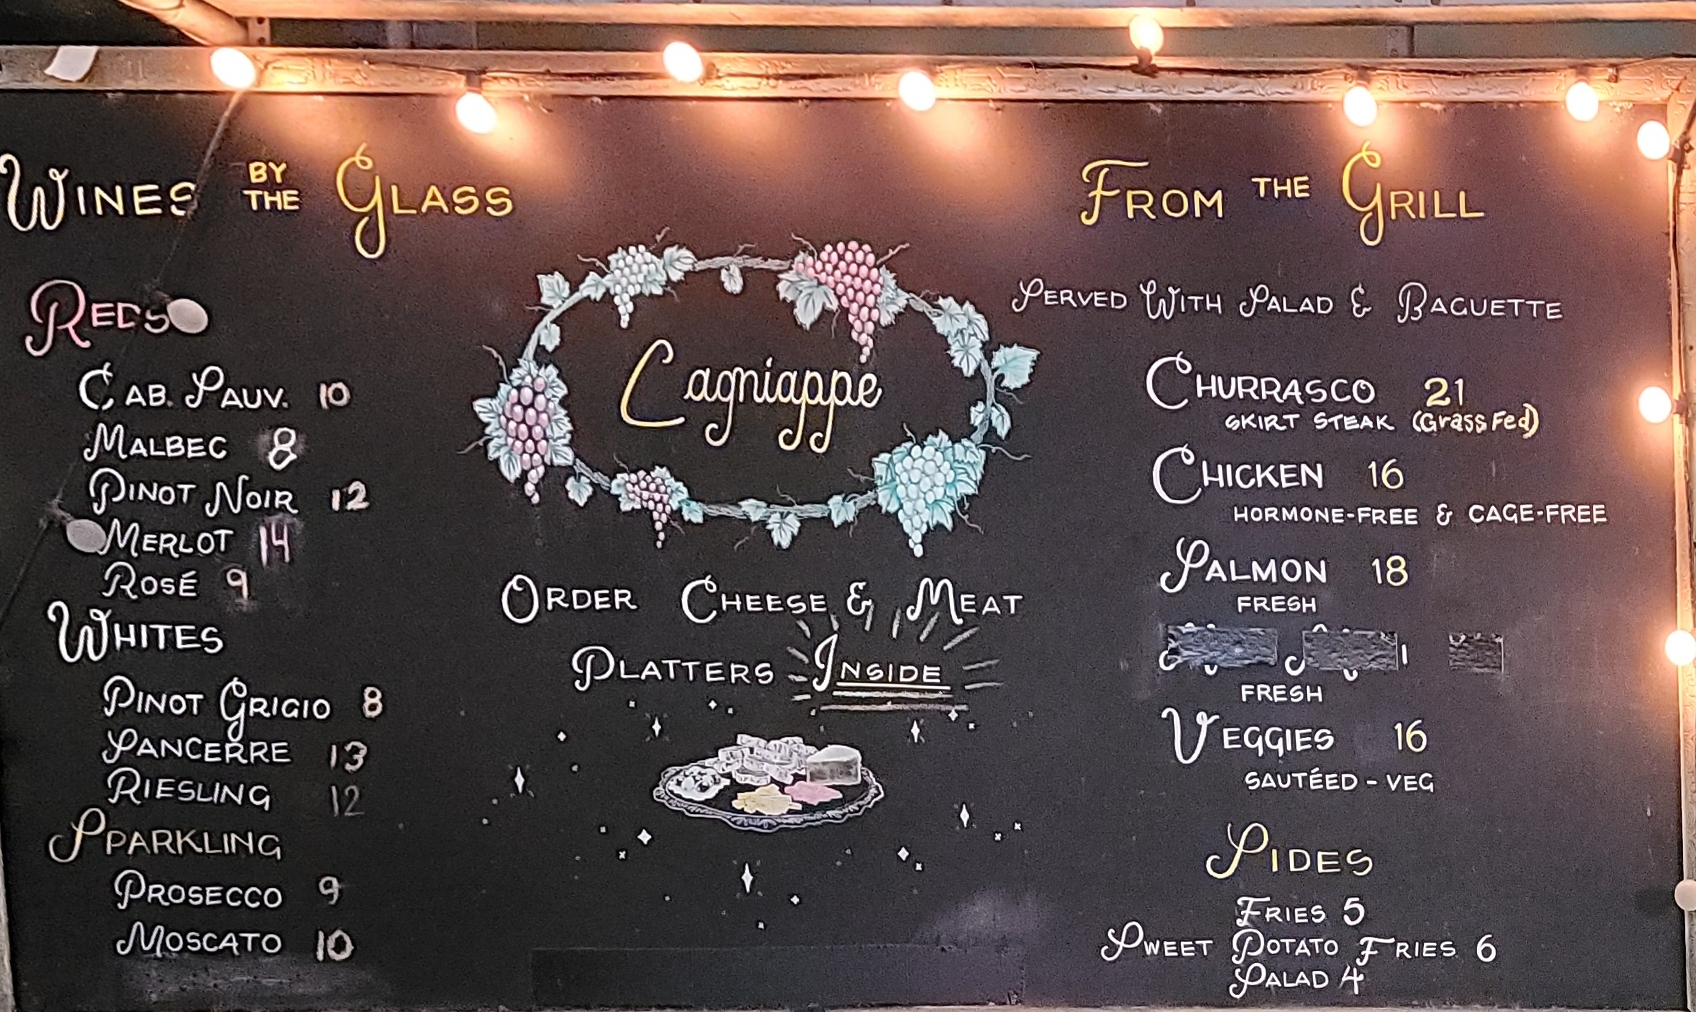 WINES BY THE GLASS
REDS
CAB. SAUV. 10
MALBEC 8
PINOT NOIR 12
MERLOT 14
ROSÉ 9
WHITES
PINOT GRIGIO 8
SANCERRE 13
RIESLING 12
SPARKLING
PROSECCO 9
MOSCATO 10
Lagniappe
ORDER CHEESE & MEAT
PLATTERS INSIDE
FROM THE GRILL
SERVED WITH SALAD & BAGUETTE
CHURRASCO 21
SKIRT STEAK (Grass Fed)
CHICKEN 16
HORMONE-FREE & CAGE-FREE
SALMON 18
FRESH
FRESH
VEGGIES 16
SAUTÉED - VEG
SIDES
FRIES 5
SWEET POTATO FRIES 6
SALAD 4